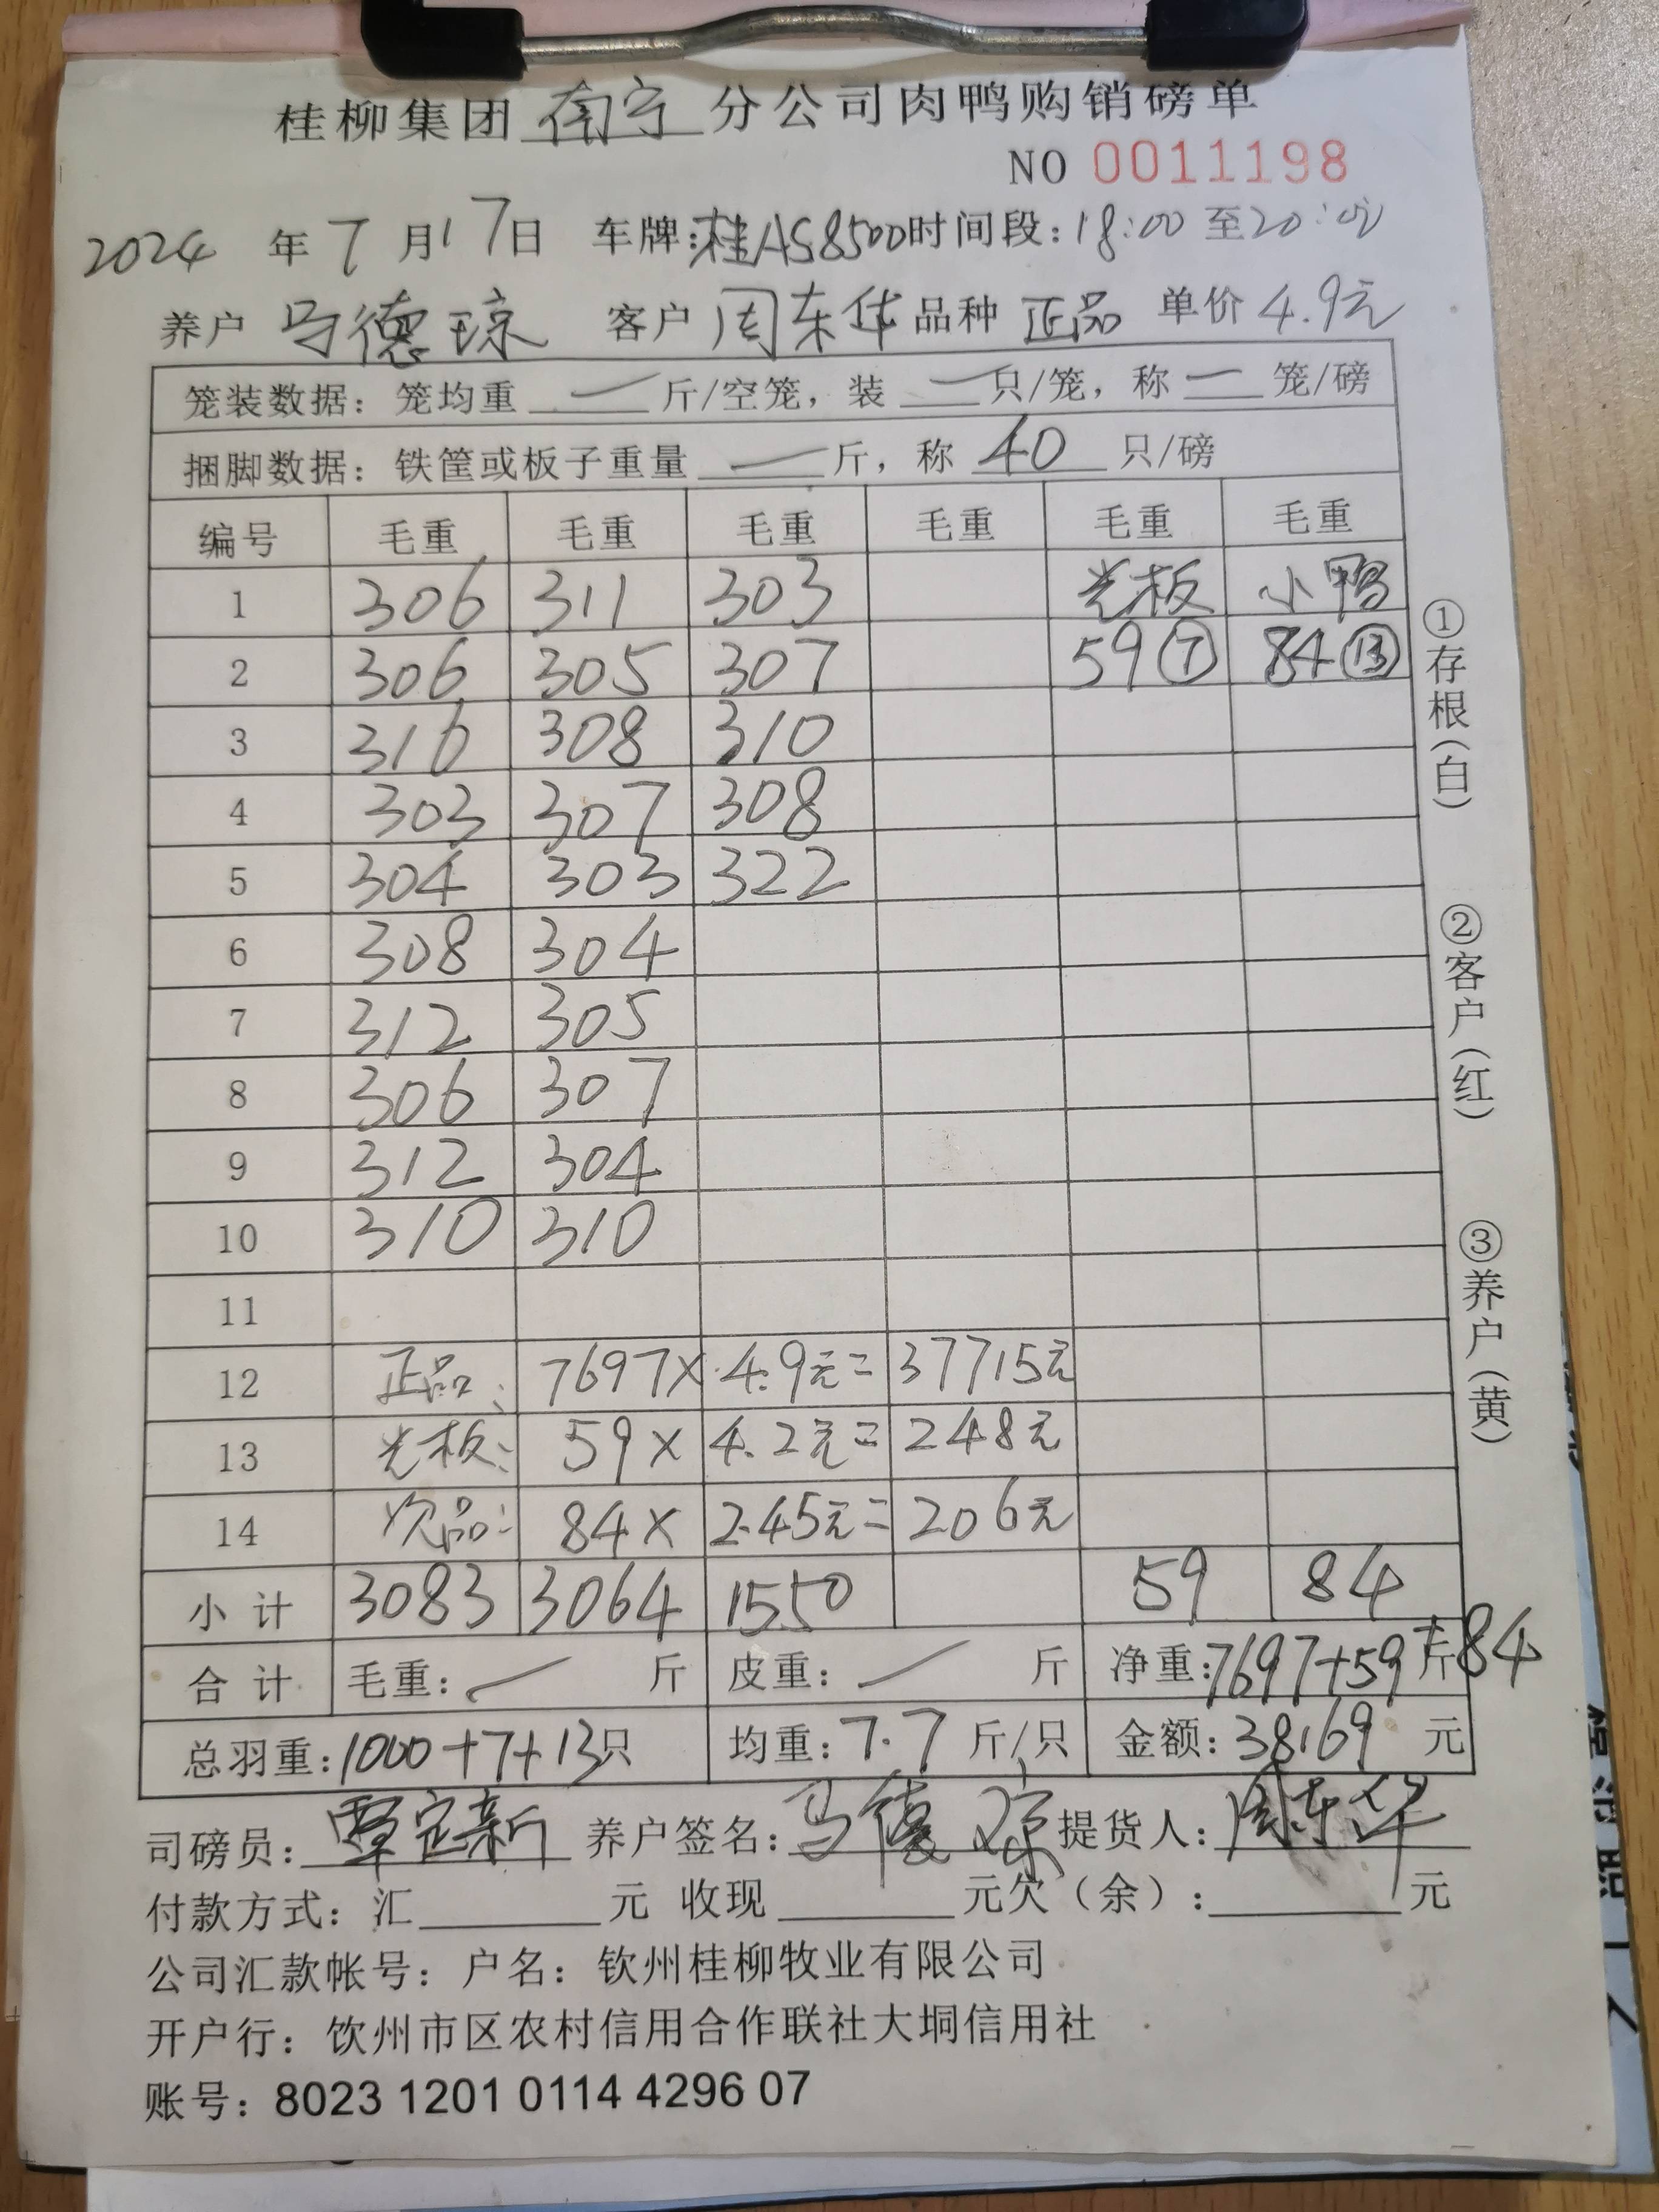 桂柳集团南宁分公司肉鸭购销磅单
NO 0011198
2024年7月17日 车牌:桂AS8500时间段:18:00至20:00
养户 马德琼 客户 周东华 品种 正品 单价 4.9元
笼装数据:笼均重 — 斤/空笼,装 — 只/笼,称 — 笼/磅
捆脚数据:铁筐或板子重量 — 斤,称 40 只/磅
编号 毛重 毛重 毛重 毛重 毛重 毛重
1 306 311 303 光板 小鸭
2 306 305 307 59⑦ 84⑬
3 316 308 310
4 303 307 308
5 304 303 322
6 308 304
7 312 305
8 306 307
9 312 304
10 310 310
11
12 正品: 7697× 4.9元= 37715元
13 光板: 59× 4.2元= 248元
14 次品: 84× 2.45元= 206元
小计 3083 3064 1550 59 84
合计 毛重: — 斤 皮重: — 斤 净重:7697+59+84斤
总羽重:1000+7+13只 均重:7.7斤/只 金额:38169元
司磅员:覃定新 养户签名:马德琼 提货人:周东华
付款方式:汇 元 收现 元欠(余): 元
公司汇款帐号:户名:钦州桂柳牧业有限公司
开户行:钦州市区农村信用合作联社大垌信用社
账号:8023 1201 0114 4296 07
①存根(白)
②客户(红)
③养户(黄)